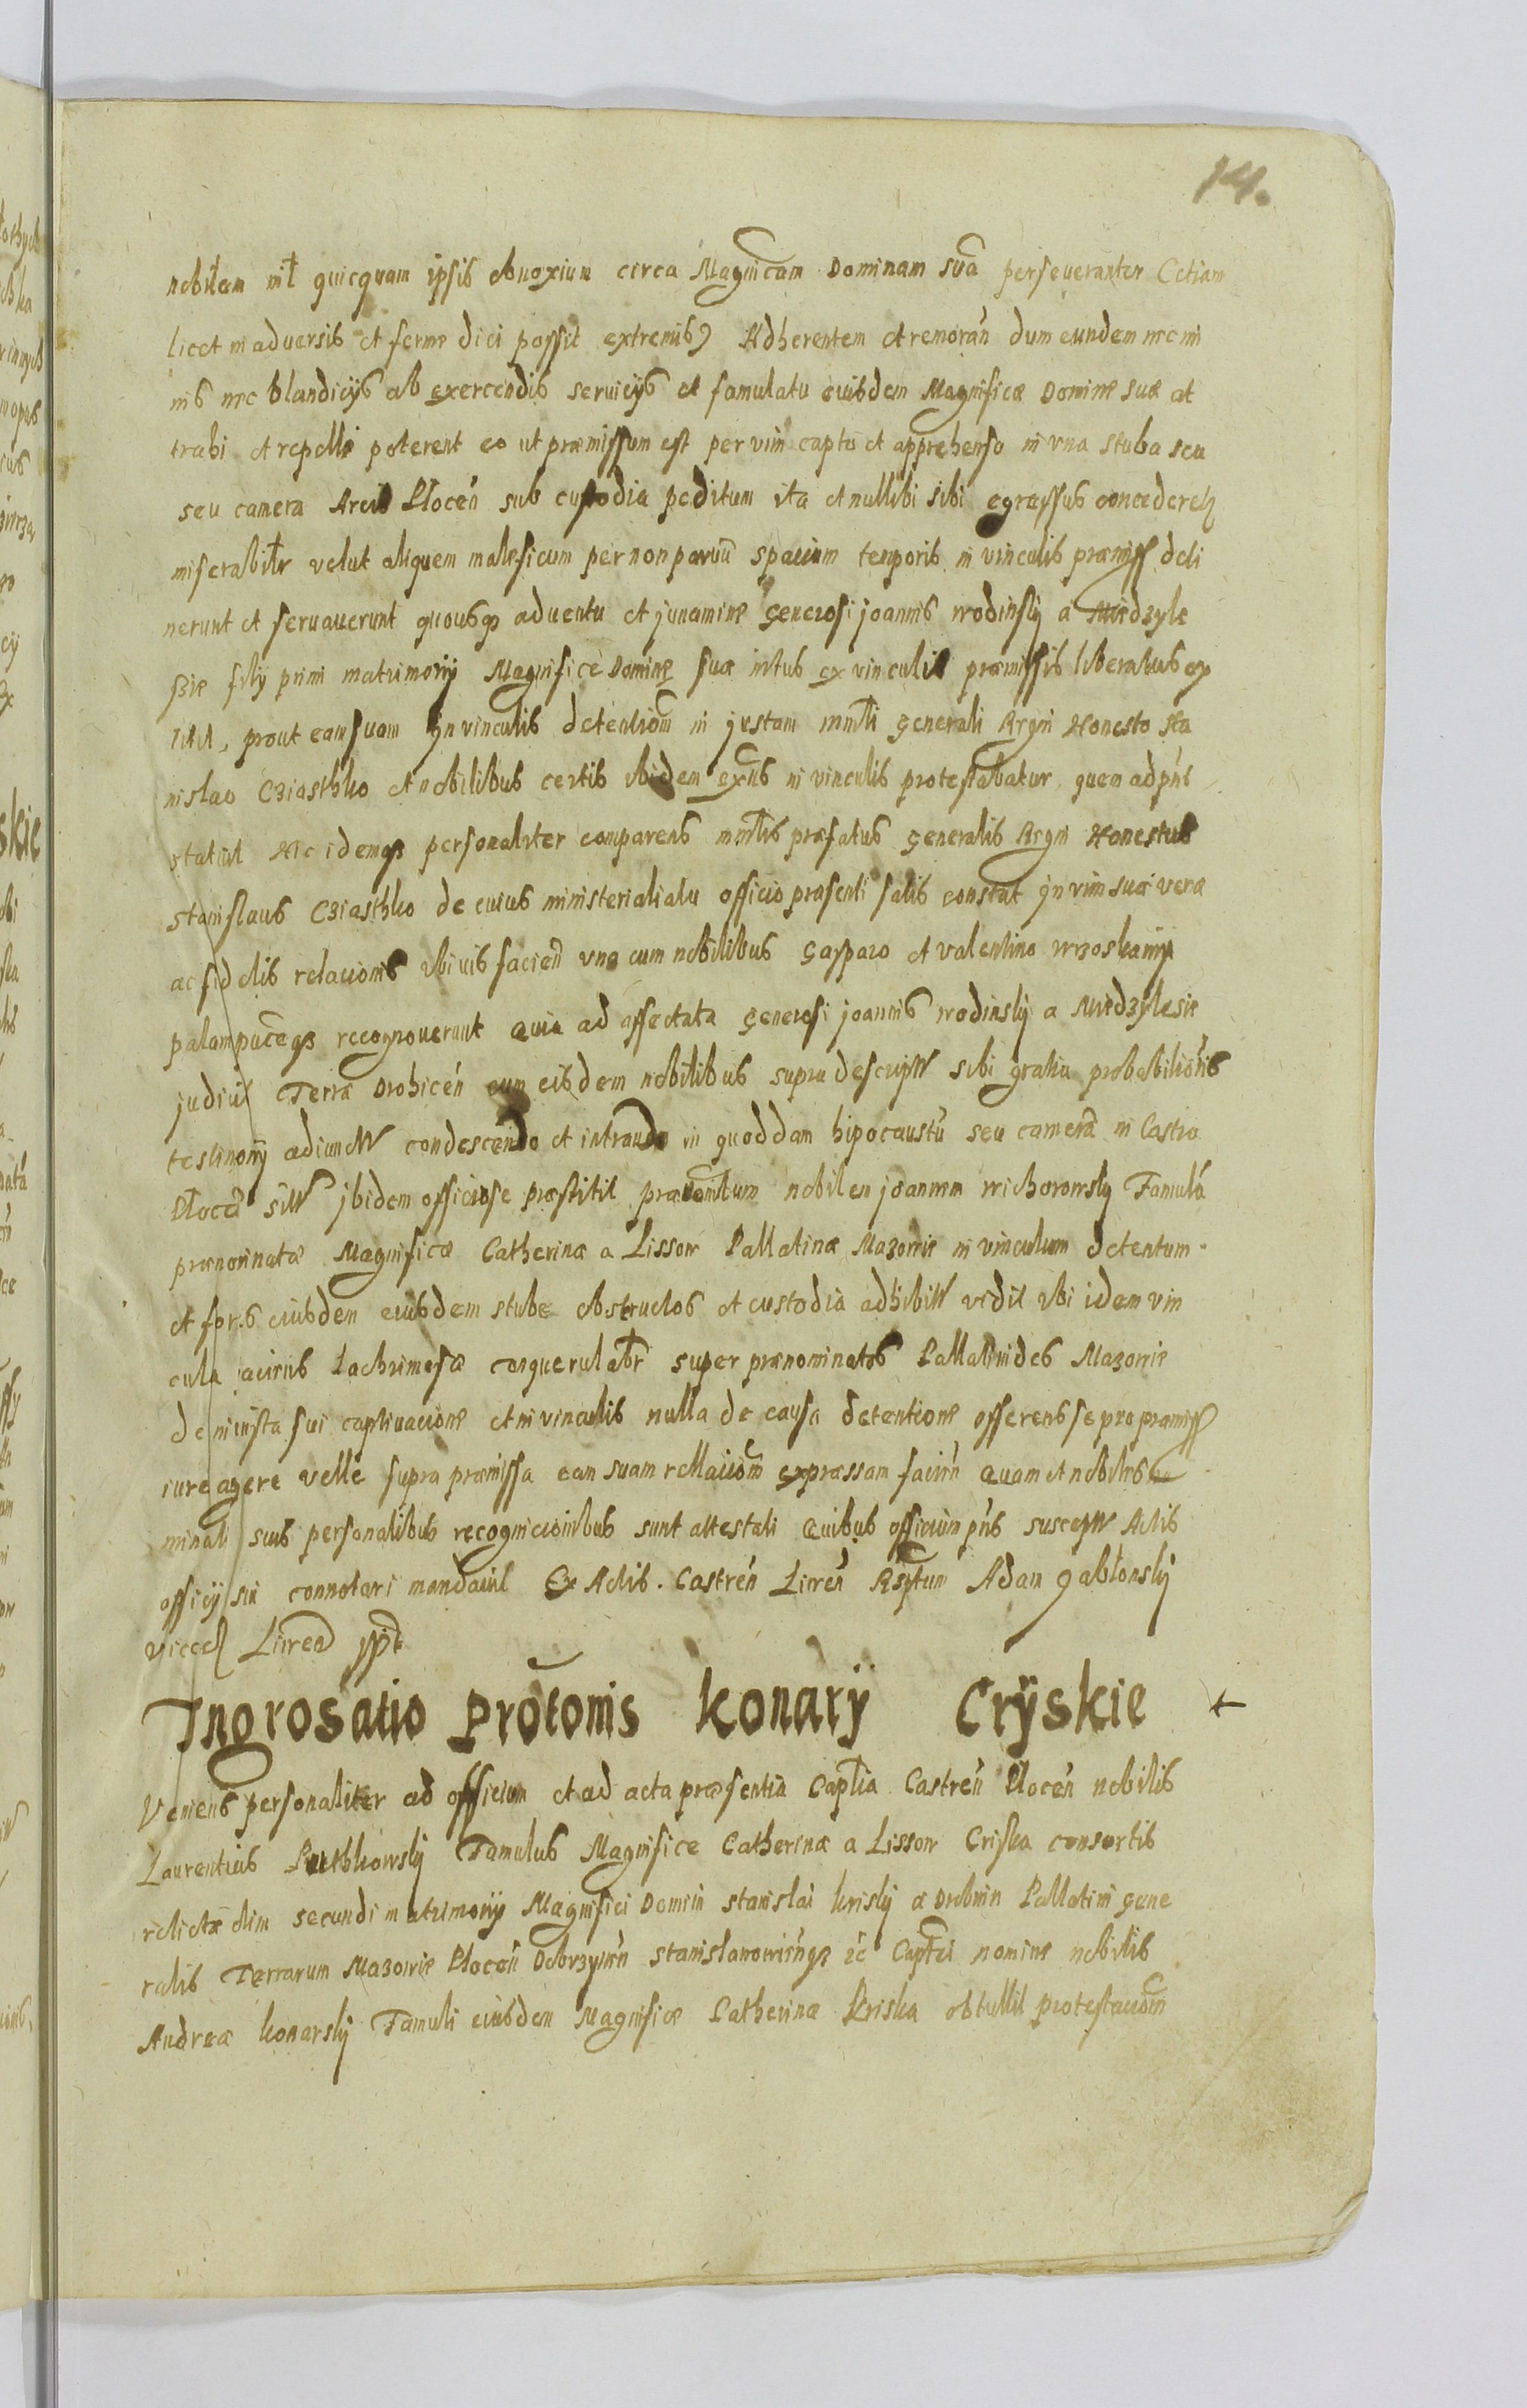 14.
nobilem nil quicquam ipsis obnoxium circa Magnicam Dominam suā perseveranter (etiam
licet in adversis et ferme dici possit extremis) Adherentem et remorāń dum eundem nec mi
nis nec blandicijs ab exercendis servicijs et famulatu eiusdem Magnificæ Dominæ suæ at
trahi et repelli poterent eo ut præmissum est per vim capto et apprehenso in una stuba seu
seu camera Arcis Płoceń sub custodia peditum ita et nullibi sibi egressus concederetz
miserabiltr velut aliquem maleficum per non parvū spacium temporis in vinculis præmiss deti
nerunt et servaverunt quousqȝ adventu et juvamine Generosi joannis wodinsky a Miedzyle
sie filij primi matrimonij Magnifice Dominę suæ intus ex vinculis præmissis liberatus ex
titit, prout eam suam jn vinculis detentionē injustam mnrli generali Regni Honesto Sta
nislao Cziasthko et nobilibus certis ibidem exn̄s in vinculis protestabatur, quem ad pn̄s
statuit Hic idemqȝ personaliter comparens mnrlis præfatus Generalis Regni Honestus
Stanislaus Cziasthko de cuius ministerialatu officio præsenti satis constat jn vim suæ veræ
ac fidelis relacionis ubivis facień una cum nobilibus Gasparo et Valentino wzoskamij
palam publiceqȝ recognoverunt Quia ad affectata Generosi joannis wodinsky a Miedzylesie
judicis Terræ Drohiceń cum eisdem nobilibus supra descript sibi gratia probabilioris
testimonij adiunct condescendo et intrando in quoddam hipocaustū seu camerā in Castro
Płoceń sitt jbidem officiose præstitit prænominatum nobilem joannem wichorowsky Famulū
prænominatæ Magnificæ Catherinæ a Lissow Pallatinæ Mazowie in vinculum detentum.
et fores eiusdem eiusdem stubæ obstructos et custodia adhibitt vidit ubi idem vin
cula patiens Lachrimosæ conquerulabr super prænominatos Pallatinides Mazowie
de injusta sui captivacione et in vinculis nulla de causa detentione offerens se pro præmiss
iure agere velle supra præmissa ean suam rellacionē expressam facień Quam et nobiles no
minati suis personalibus recognicionibus sunt attestati Quibus officium pn̄s suscept Actis
officij sui connotari mandavit Ex Actis. Castreń Liweń Rsptum Adam Jabłonsky
Vicecap Liweń spt
Ingrosatio Protōnis Konary Cryskie
Veniens personaliter ad officium et ad acta præsentia Captlia Castreń Płoceń nobilis
Laurentius Puthkowsky Famulus Magnifice Catherinæ a Lissow Criska consortis
relictæ olim secundi matrimonij Magnifici Domini Stanislai Krisky a Drobnin Pallatini Gene
ralis Terrarum Mazowie Płoceń Dobrzyneń Stanislawowieńqȝ zc Captei nomine nobilis
Andreæ Konarsky Famuli eiusdem Magnificæ Catherinæ Kriska obtullit protestacionē